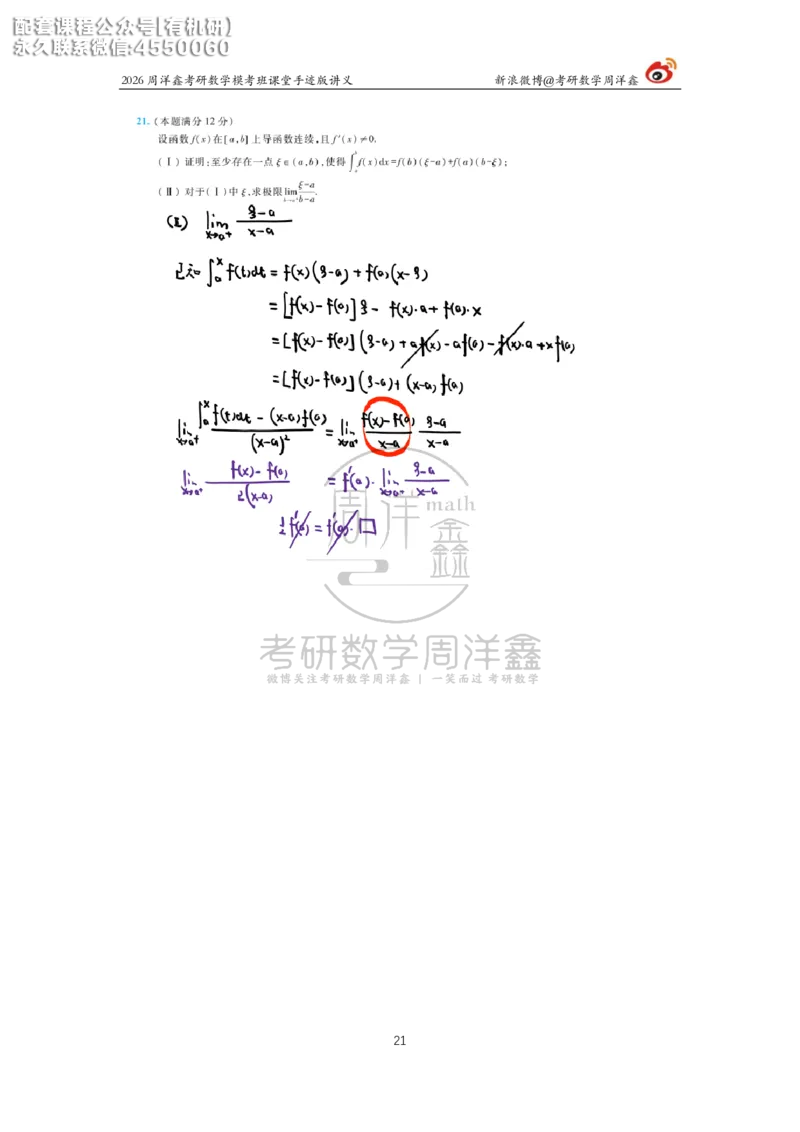 配套课程公众号[有机研)
永久联系微信:4550060
2026 周洋鑫考研数学模考班课堂手迹版讲义 新浪微博@考研数学周洋鑫
21.(本题满分 12 分)
设函数 f(x)在[a,b]上导函数连续,且 f'(x)≠0.
(Ⅰ) 证明:至少存在一点 ξ∈(a,b),使得 ∫_a^b f(x)dx=f(b)(ξ-a)+f(a)(b-ξ);
(Ⅱ) 对于(Ⅰ)中 ξ,求极限 lim_{b→a⁺} (ξ-a)/(b-a).
(Ⅱ) lim_{x→a⁺} (ξ-a)/(x-a)
已知 ∫_a^x f(t)dt = f(x)(ξ-a) + f(a)(x-ξ)
= [f(x)-f(a)]ξ - f(x)·a + f(a)·x
= [f(x)-f(a)](ξ-a) + a f(x) - a f(a) - f(x)·a + x f(a)
= [f(x)-f(a)](ξ-a) + (x-a) f(a)
lim_{x→a⁺} (∫_a^x f(t)dt - (x-a)f(a))/(x-a)² = lim_{x→a⁺} (f(x)-f(a))/(x-a) · (ξ-a)/(x-a)
lim_{x→a⁺} (f(x)-f(a))/(2(x-a)) = f'(a)· lim_{x→a⁺} (ξ-a)/(x-a)
1/2 f'(a) = f'(a)·□
周洋 math
鑫
考研数学周洋鑫
微博关注考研数学周洋鑫 | 一笑而过 考研数学
21